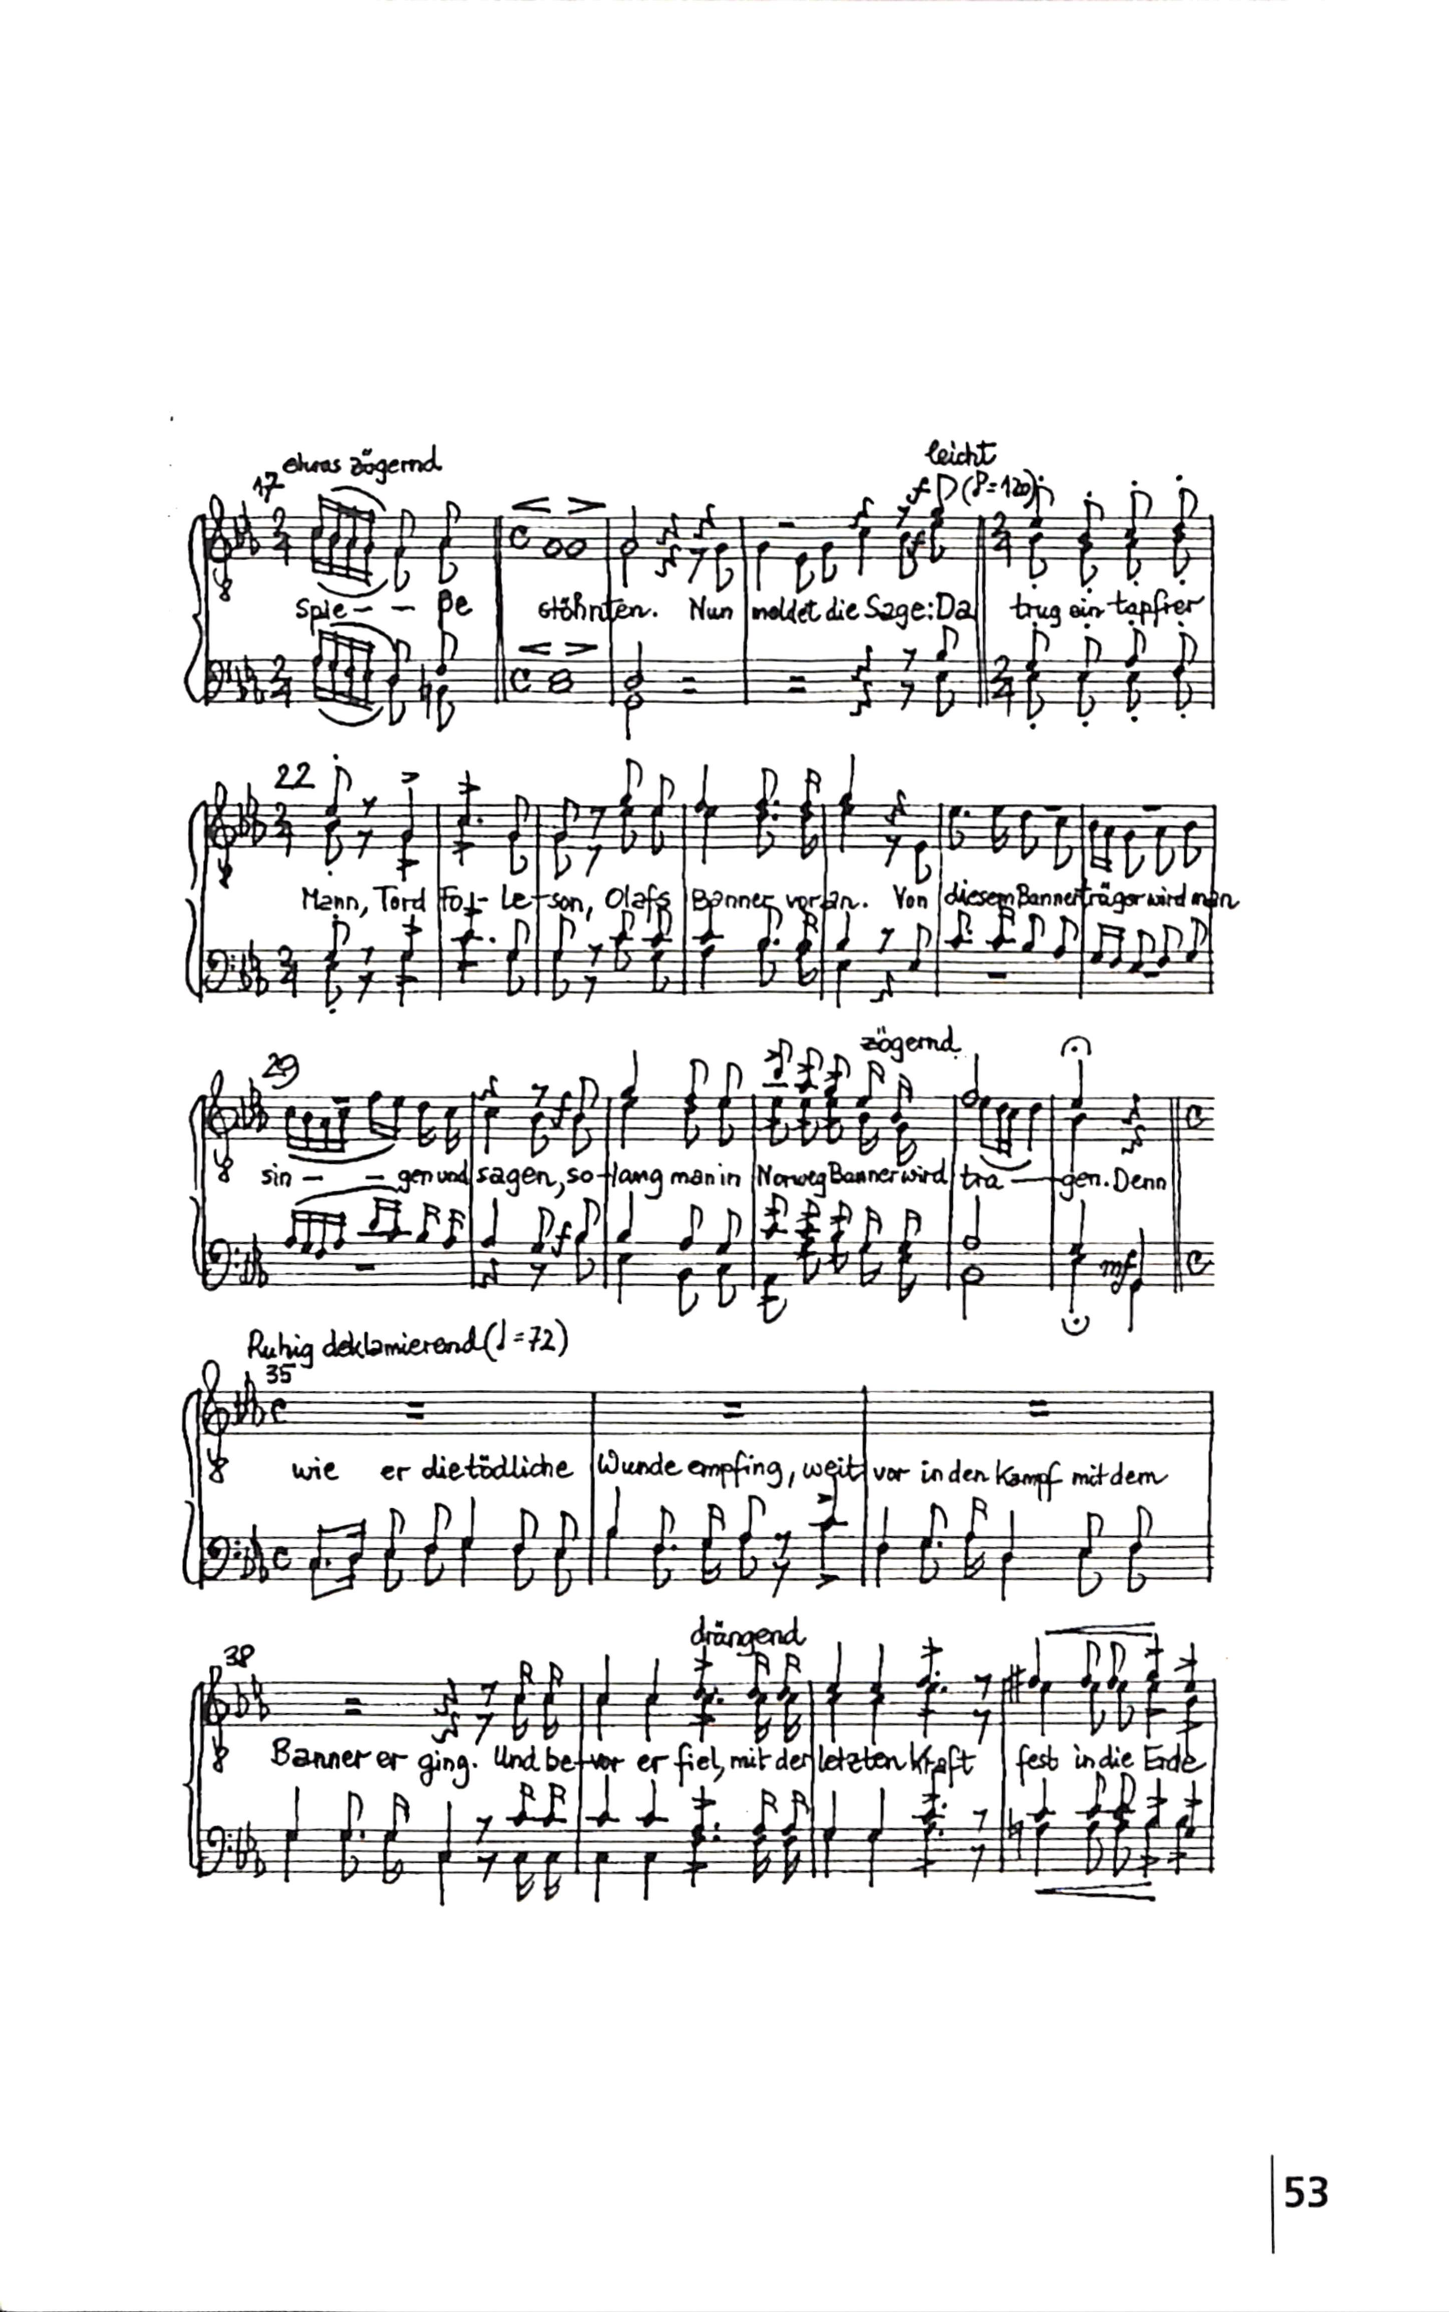 etwas zögernd
leicht
17
f (♪=120)
f
Spie – – ße stöhnten. Nun meldet die Sage: Da trug ein tapfrer
22
Mann, Tord Fo - le - son, Olafs Banner voran. Von diesem Bannerträger wird man
zögernd
29
f
sin – – gen und sagen, so - lang man in Norweg Banner wird tra – gen. Denn
f
mf
Ruhig deklamierend (♩=72)
35
wie er die tödliche Wunde empfing, weit vor in den Kampf mit dem
drängend
38
Banner er ging. Und be - vor er fiel, mit der letzten Kraft fest in die Erde
53